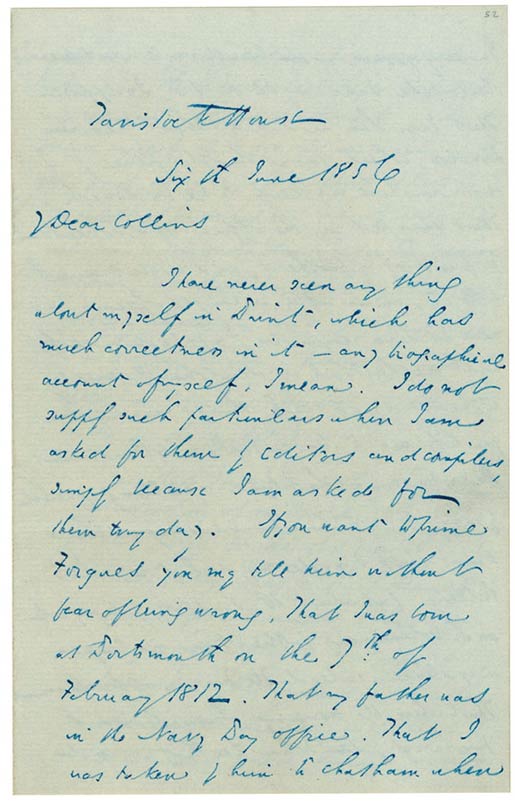 52
Tavistock House
Sixth June 1856
My Dear Collins
I have never seen any thing
about myself in Print, which has
much correctness in it – any biographical
account of myself, I mean. I do not
supply such particulars when I am
asked for them by editors and compilers,
simply because I am asked for
them every day. If you want to prime
Forgues you may tell him without
fear of being wrong, That I was born
at Portsmouth on the 7th of
February 1812. That my father was
in the Navy Pay office. That I
was taken by him to Chatham when